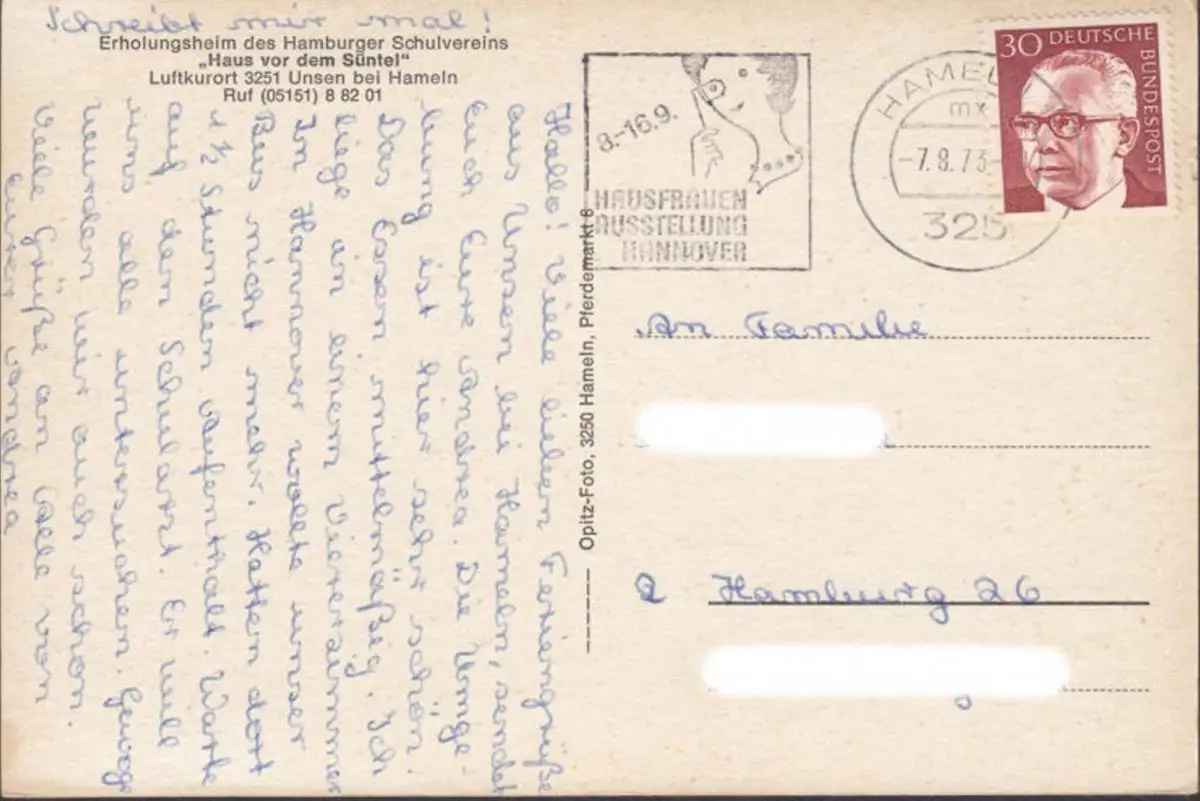 Schreibt mir mal!
Erholungsheim des Hamburger Schulvereins
„Haus vor dem Süntel“
Luftkurort 3251 Unsen bei Hameln
Ruf (05151) 8 82 01
Hallo! Viele lieben Feriengrüße
aus Unsen bei Hameln, sendet
Euch Eure Andrea. Die Umge-
bung ist hier sehr schön.
Das Essen mittelmäßig. Ich
liege in einem Viererzimmer
In Hannover wollte unser
Bus nicht mehr. Hatten dort
1 ½ Stunden Aufenthalt. Warte
auf den Schularzt. Er will
uns alle untersuchen. Gewogen
wurden wir auch schon.
Viele Grüße an Alle von
Eurer Andrea
Opitz-Foto, 3250 Hameln, Pferdemarkt 8
8.-16.9.
HAUSFRAUEN
AUSSTELLUNG
HANNOVER
HAMEL
mx
-7.8.73-
325
30 DEUTSCHE
BUNDESPOST
An Familie
2 Hamburg 26